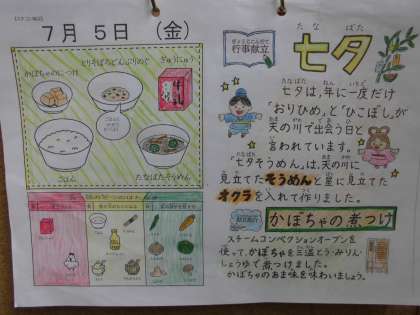 7月 5日 (金)
かぼちゃのにつけ
とりそぼろどんぶりのぐ
ぎゅうにゅう
牛乳
ごはん
たなばたそうめん
行事献立
たなばた
七夕
七夕は、年に一度だけ
"おりひめ"と"ひこぼし"が
天の川で出会う日と
言われています。
"七夕そうめん"は、天の川に
見立てたそうめんと星に見立てた
オクラを入れて作りました。
かぼちゃの煮つけ
スチームコンベクションオーブンを
使って、かぼちゃを三温とう・みりん・
しょうゆで煮つけました。
かぼちゃのあま味を味わいましょう。